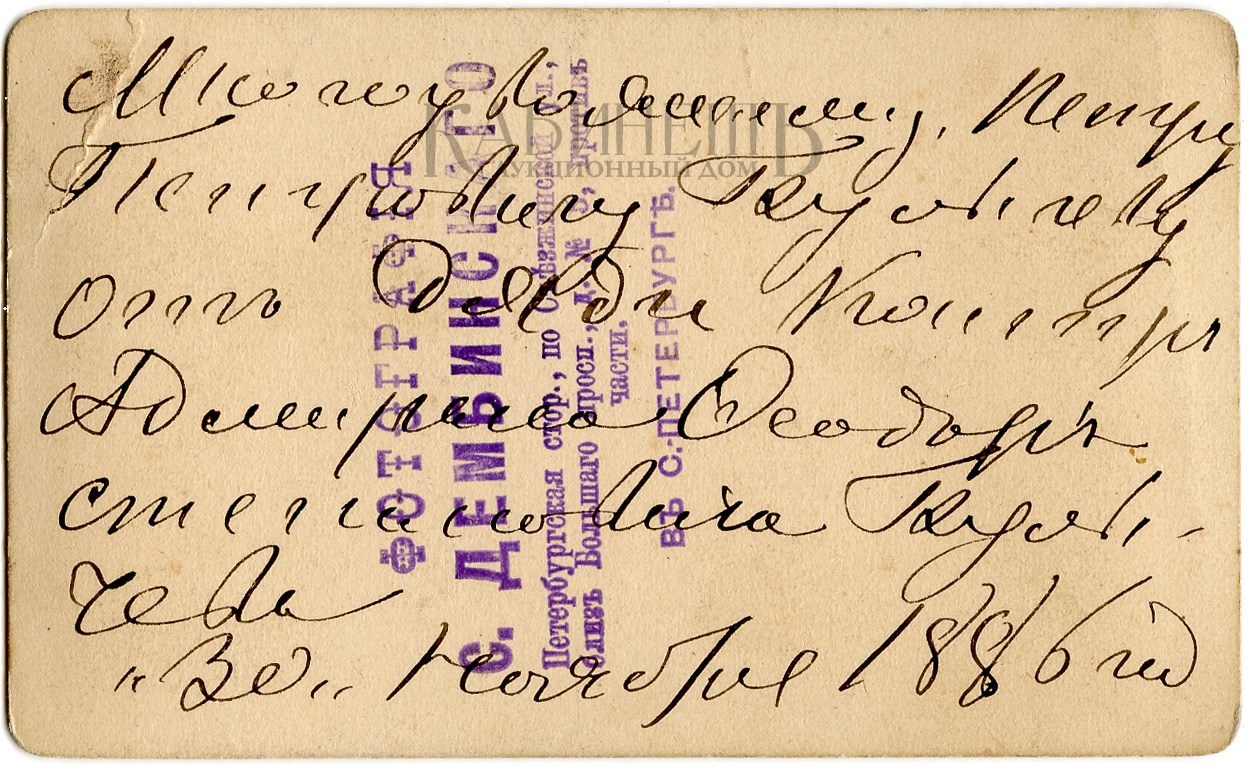 Многоуважаемому, Петру
Петровичу Кулычеву
отъ дяди Контръ
Адмирала Ѳеодора
Степановича Кулы-
чева
"30" Ноября 1886 год
ФОТОГРАФІЯ
С. ДЕМБИНСКАГО
Петербургская стор., по Съѣзжинской ул.,
близъ Большаго просп., д. №, противъ
части.
ВЪ С.-ПЕТЕРБУРГѢ.
КАБИНЕТЪ
АУКЦИОННЫЙ ДОМ